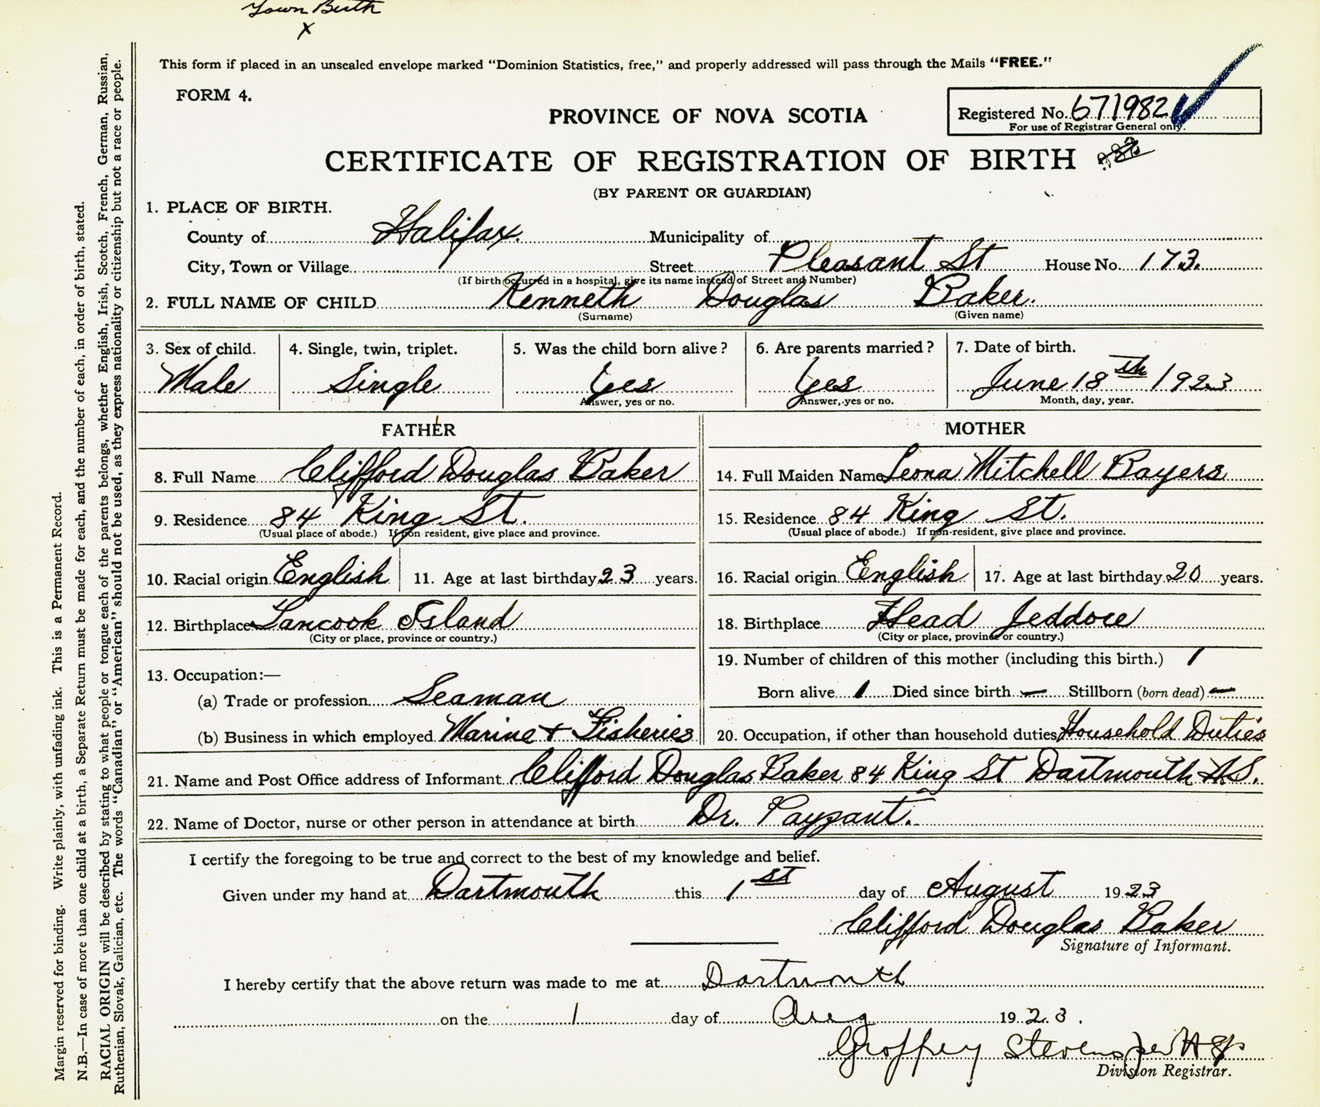 Town Birth
X
This form if placed in an unsealed envelope marked "Dominion Statistics, free," and properly addressed will pass through the Mails "FREE."
FORM 4.
PROVINCE OF NOVA SCOTIA
Registered No. 671982
For use of Registrar General only.
CERTIFICATE OF REGISTRATION OF BIRTH
(BY PARENT OR GUARDIAN)
1. PLACE OF BIRTH.
County of Halifax. Municipality of
City, Town or Village Street Pleasant St House No. 173.
(If birth occurred in a hospital, give its name instead of Street and Number)
2. FULL NAME OF CHILD Kenneth Douglas Baker.
(Surname) (Given name)
3. Sex of child. 4. Single, twin, triplet. 5. Was the child born alive? 6. Are parents married? 7. Date of birth.
Male Single Yes Yes June 18th 1923
Answer, yes or no. Answer, yes or no. Month, day, year.
FATHER MOTHER
8. Full Name Clifford Douglas Baker 14. Full Maiden Name Leona Mitchell Bayers
9. Residence 84 King St. 15. Residence 84 King St.
(Usual place of abode.) If non resident, give place and province. (Usual place of abode.) If non-resident, give place and province.
10. Racial origin English 11. Age at last birthday 23 years. 16. Racial origin English 17. Age at last birthday 20 years.
12. Birthplace Tancook Island 18. Birthplace Head Jeddore
(City or place, province or country.) (City or place, province or country.)
13. Occupation:— 19. Number of children of this mother (including this birth.) 1
(a) Trade or profession Seaman Born alive 1 Died since birth — Stillborn (born dead) —
(b) Business in which employed Marine + Fisheries 20. Occupation, if other than household duties Household Duties
21. Name and Post Office address of Informant Clifford Douglas Baker 84 King St Dartmouth N.S.
22. Name of Doctor, nurse or other person in attendance at birth Dr. Payzant.
I certify the foregoing to be true and correct to the best of my knowledge and belief.
Given under my hand at Dartmouth this 1st day of August 1923
Clifford Douglas Baker
Signature of Informant.
I hereby certify that the above return was made to me at Dartmouth
on the 1 day of Aug 1923.
Groffrey Stevens per
Division Registrar.
Margin reserved for binding. Write plainly, with unfading ink. This is a Permanent Record.
N.B.—In case of more than one child at a birth, a Separate Return must be made for each, and the number of each, in order of birth, stated.
RACIAL ORIGIN will be described by stating to what people or tongue each of the parents belongs, whether English, Irish, Scotch, French, German, Russian,
Ruthenian, Slovak, Galician, etc. The words "Canadian" or "American" should not be used, as they express nationality or citizenship but not a race or people.